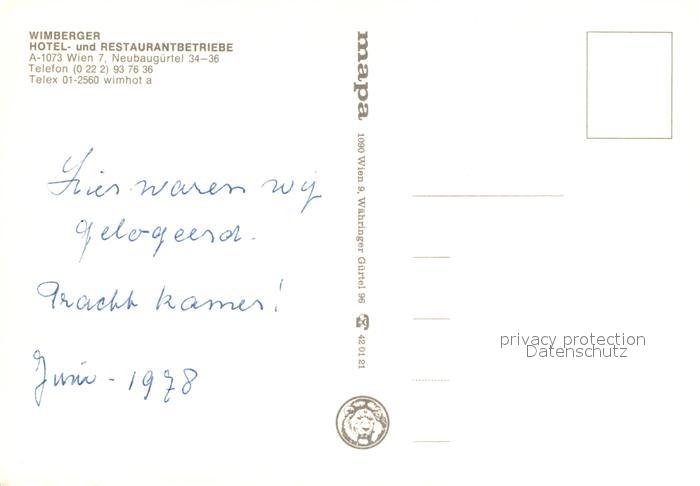 WIMBERGER
HOTEL- und RESTAURANTBETRIEBE
A-1073 Wien 7, Neubaugürtel 34—36
Telefon (0 22 2) 93 76 36
Telex 01-2560 wimhot a
Hier waren wij
gelogeerd.
Pracht kamer!
Juni - 1978
mapa 1090 Wien 9, Währinger Gürtel 96 ☎ 42 01 21
privacy protection
Datenschutz